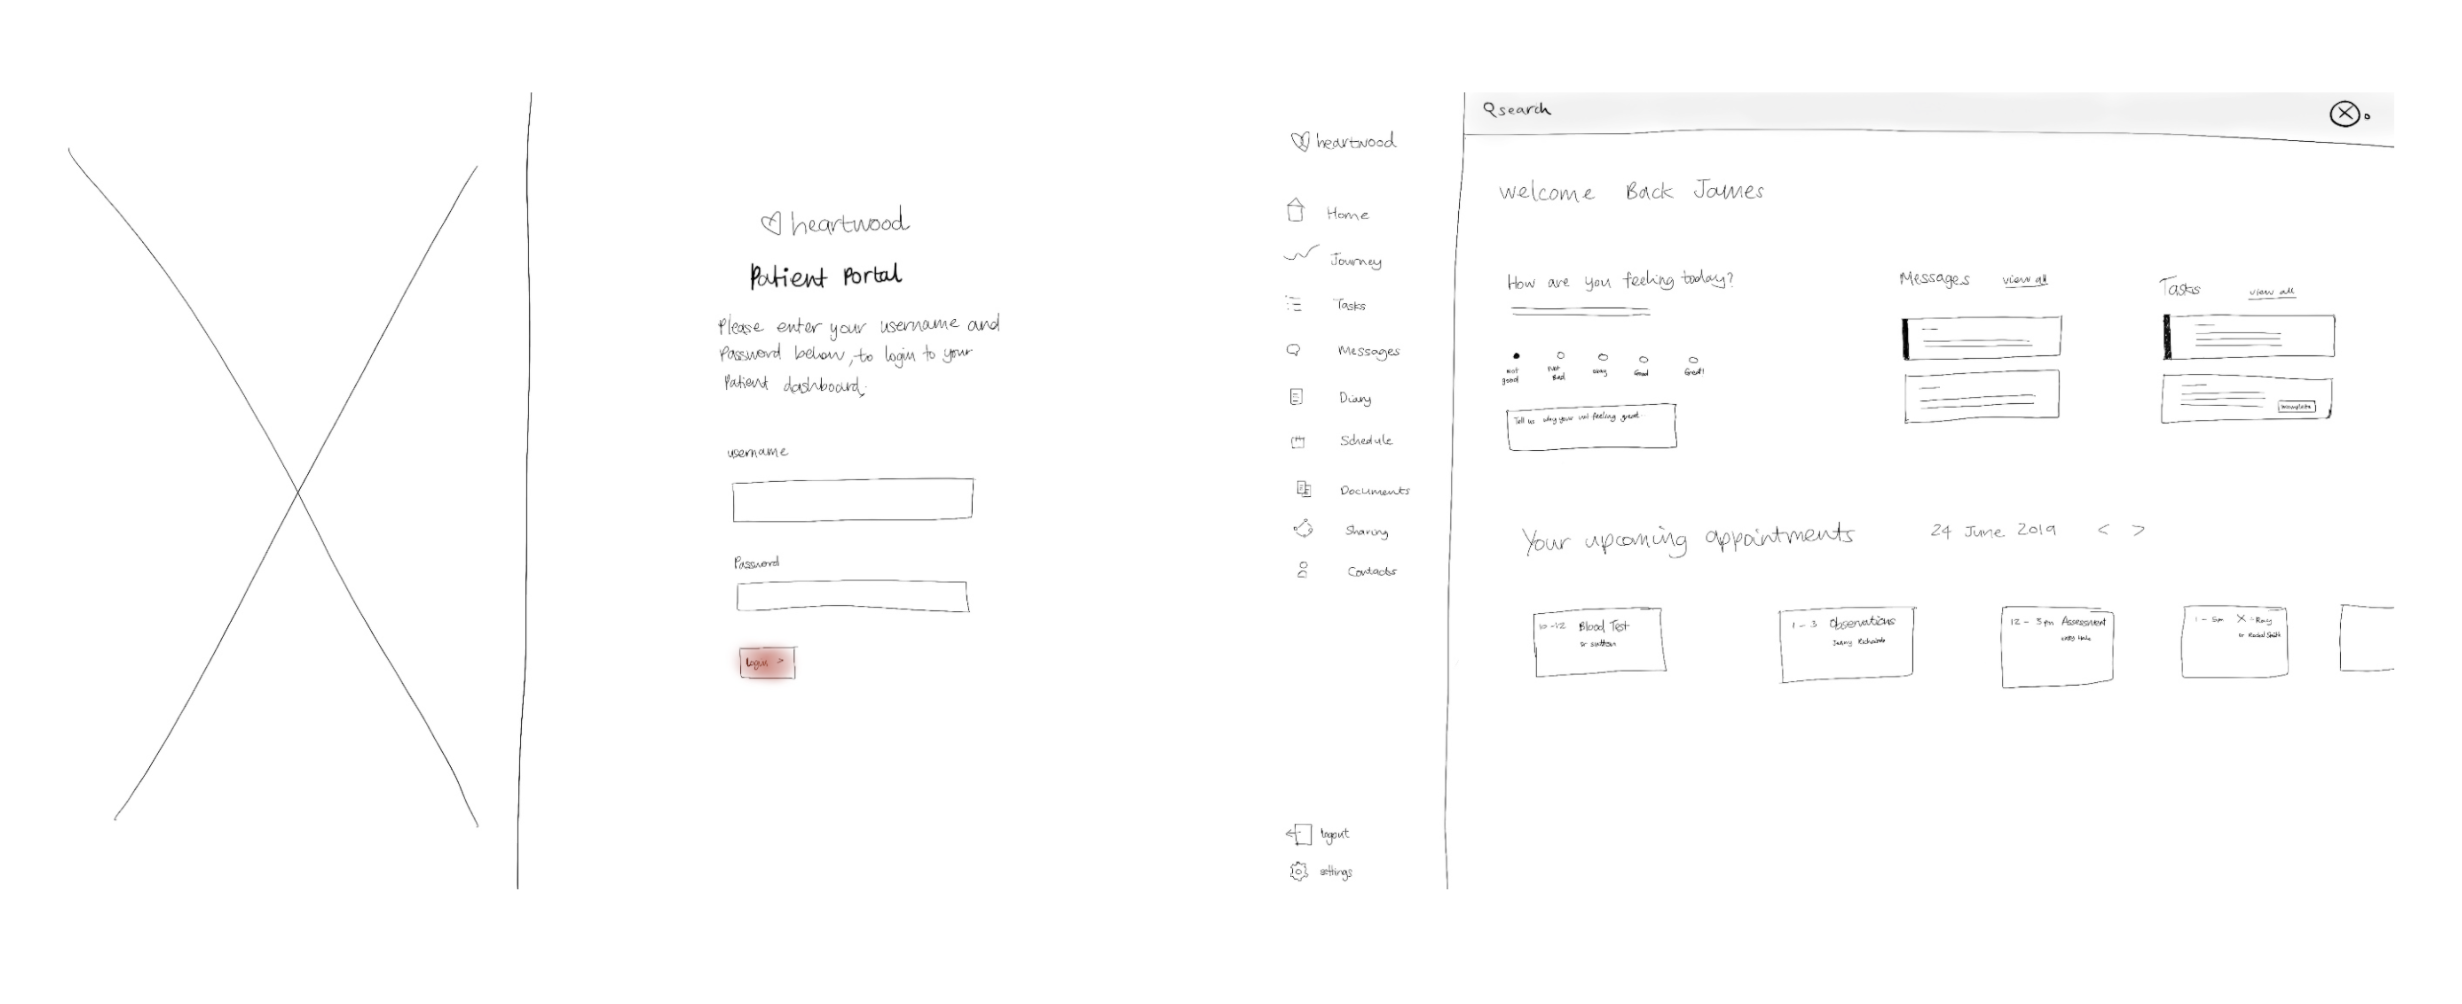 heartwood
Patient Portal
Please enter your username and
Password below, to login to your
Patient dashboard.
username
Password
Login >
heartwood
Home
Journey
Tasks
Messages
Diary
Schedule
Documents
Sharing
Contacts
logout
settings
search
welcome Back James
How are you feeling today?
not good
Not Bad
okay
Good
Great!
Tell us why your not feeling great
Messages view all
Tasks view all
Your upcoming appointments 24 June 2019 < >
10-12 Blood Test
Dr sutton
1 - 3 Observations
Jenny
12 - 3pm Assessment
1 - 5m X-Ray
Dr Rachel